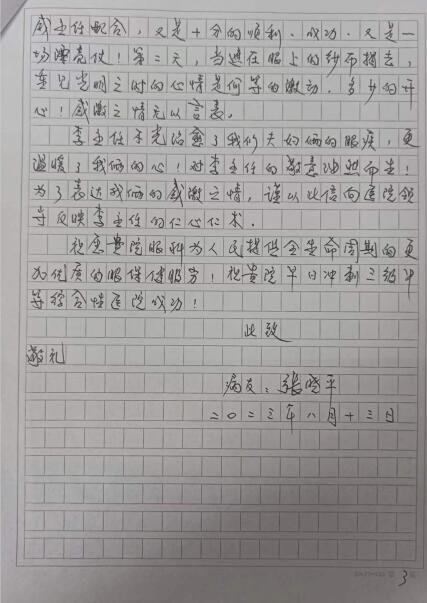 威主任配合，又是十分的顺利、成功．又是一
场漂亮仗！第二天，当遮在眼上的纱布揭去，
重见光明之时的心情是何等的激动．多少的开
心！感激之情无以言表。
李主任不光治愈了我们夫妇俩的眼疾，更
温暖了我俩的心！对李主任的敬意油然而生！
为了表达我俩的感激之情，谨以此信向医院领
导反映李主任的仁心仁术．
祝愿贵院眼科为人民提供全生命周期的更
为优质的眼保健服务！祝贵院早日冲刺三级甲
等综合性医院成功！
此致
敬礼
病友：张晓平
二〇二三年八月十三日
3